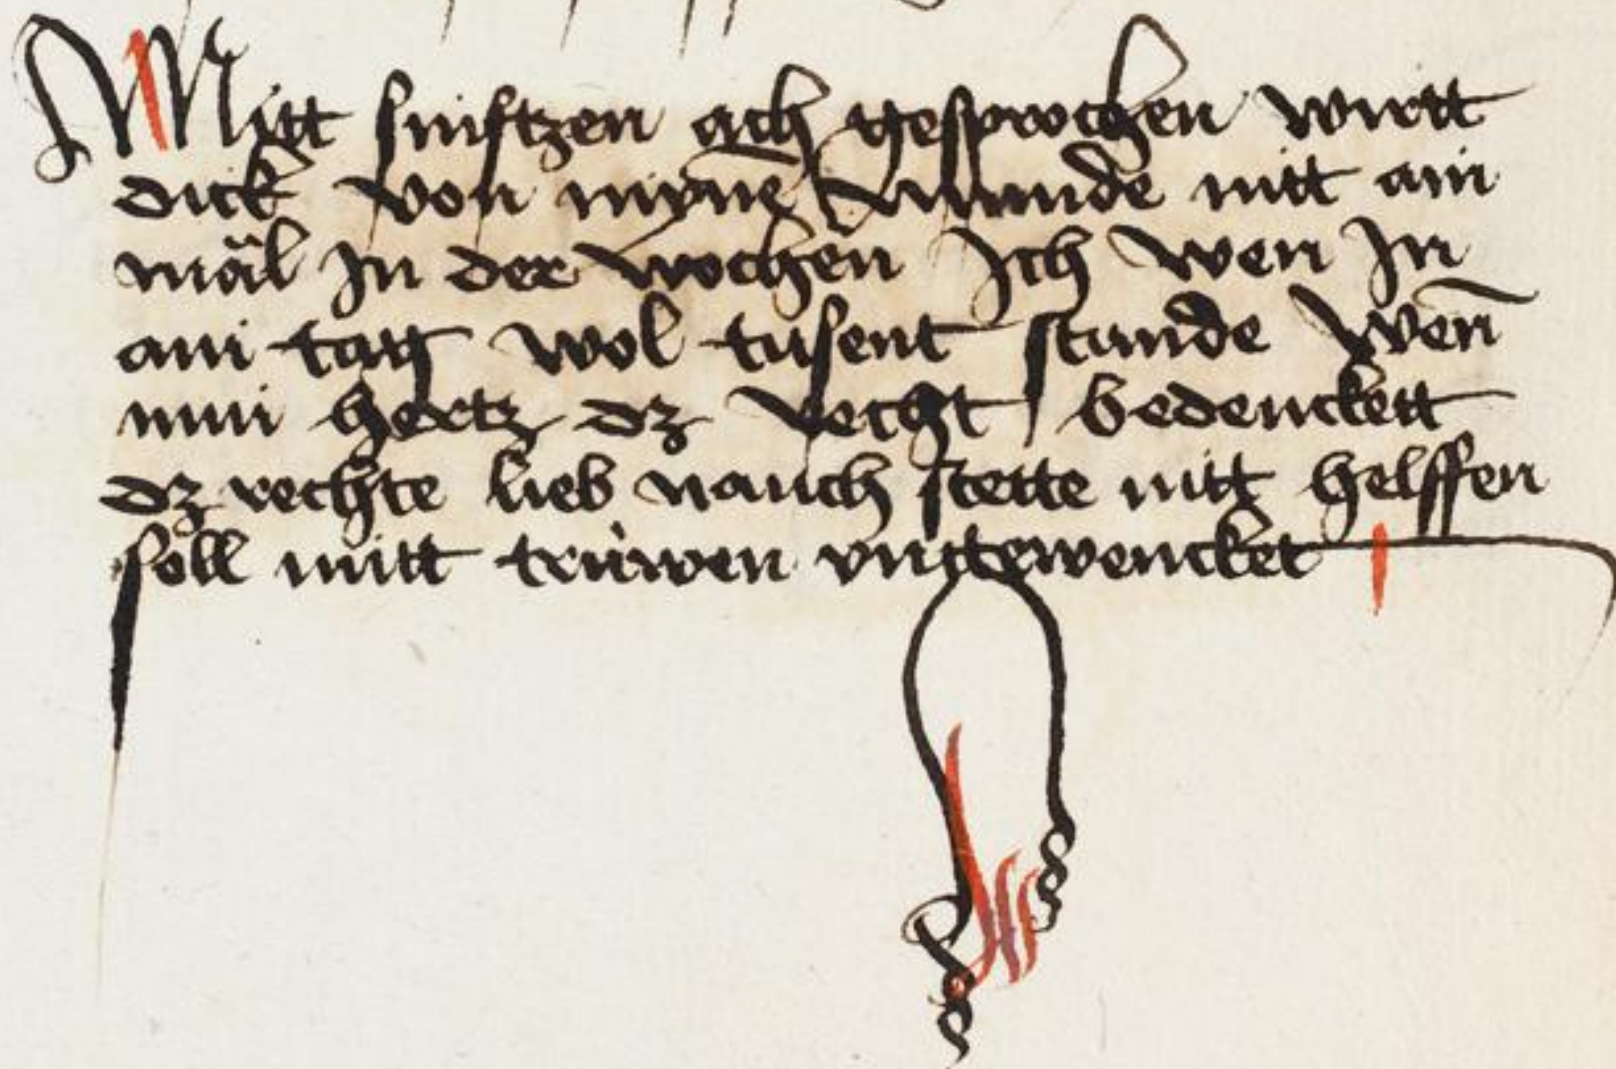 Mitt súfftzen ach gesprochen wirtt
dick von mynē munde nitt ain
mǎl In der wochen Ich wen In
ain tag wol tusent stunde Wen̄
min hertz dz recht bedenckett
dz rechte lieb nauch stette mitt helffen
soll mitt trúwen vngewencket